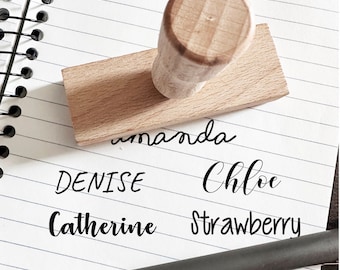 amanda
DENISE Chloe
Catherine Strawberry